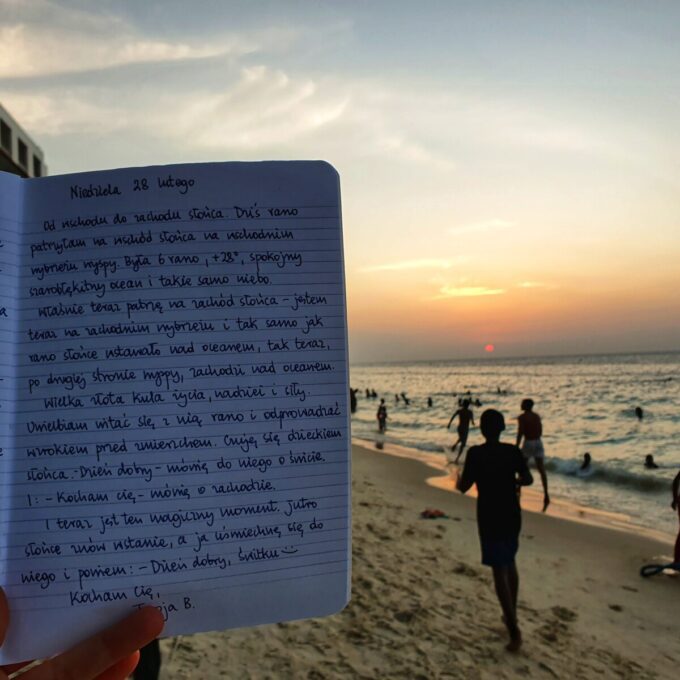 Niedziela 28 lutego
Od wschodu do zachodu słońca. Dziś rano
patrzyłam na wschód słońca na wschodnim
wybrzeżu wyspy. Była 6 rano, +28°, spokojny
szarobłękitny ocean i takie samo niebo.
Właśnie teraz patrzę na zachód słońca - jestem
teraz na zachodnim wybrzeżu i tak samo jak
rano słońce wstawało nad oceanem, tak teraz,
po drugiej stronie wyspy, zachodzi nad oceanem.
Wielka złota kula życia, nadziei i siły.
Uwielbiam witać się z nią rano i odprowadzać
wzrokiem przed zmierzchem. Czuję się dzieckiem
słońca. :-Dzień dobry - mówię do niego o świcie.
I: - Kocham cię - mówię o zachodzie.
I teraz jest ten magiczny moment. Jutro
słońce znów wstanie, a ja uśmiechnę się do
niego i powiem: - Dzień dobry, świtku
Kocham Cię,
B.